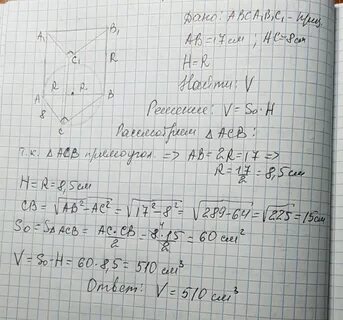 Дано: ABCA₁B₁C₁ - приз.
AB = 17 см ; AC = 8 см
H = R
Найти: V
Решение: V = Sо · H
Рассмотрим △ ACB :
т.к. △ACB прямоугол. => AB = 2R = 17 =>
R = 17/2 = 8,5 см
H = R = 8,5 см
CB = √AB² - AC² = √17² - 8² = √289 - 64 = √225 = 15 см
Sо = S△ACB = AC · CB / 2 = 8 · 15 / 2 = 60 см²
V = Sо · H = 60 · 8,5 = 510 см³
Ответ: V = 510 см³
A₁
B₁
C₁
R
R
R
A
B
8
C